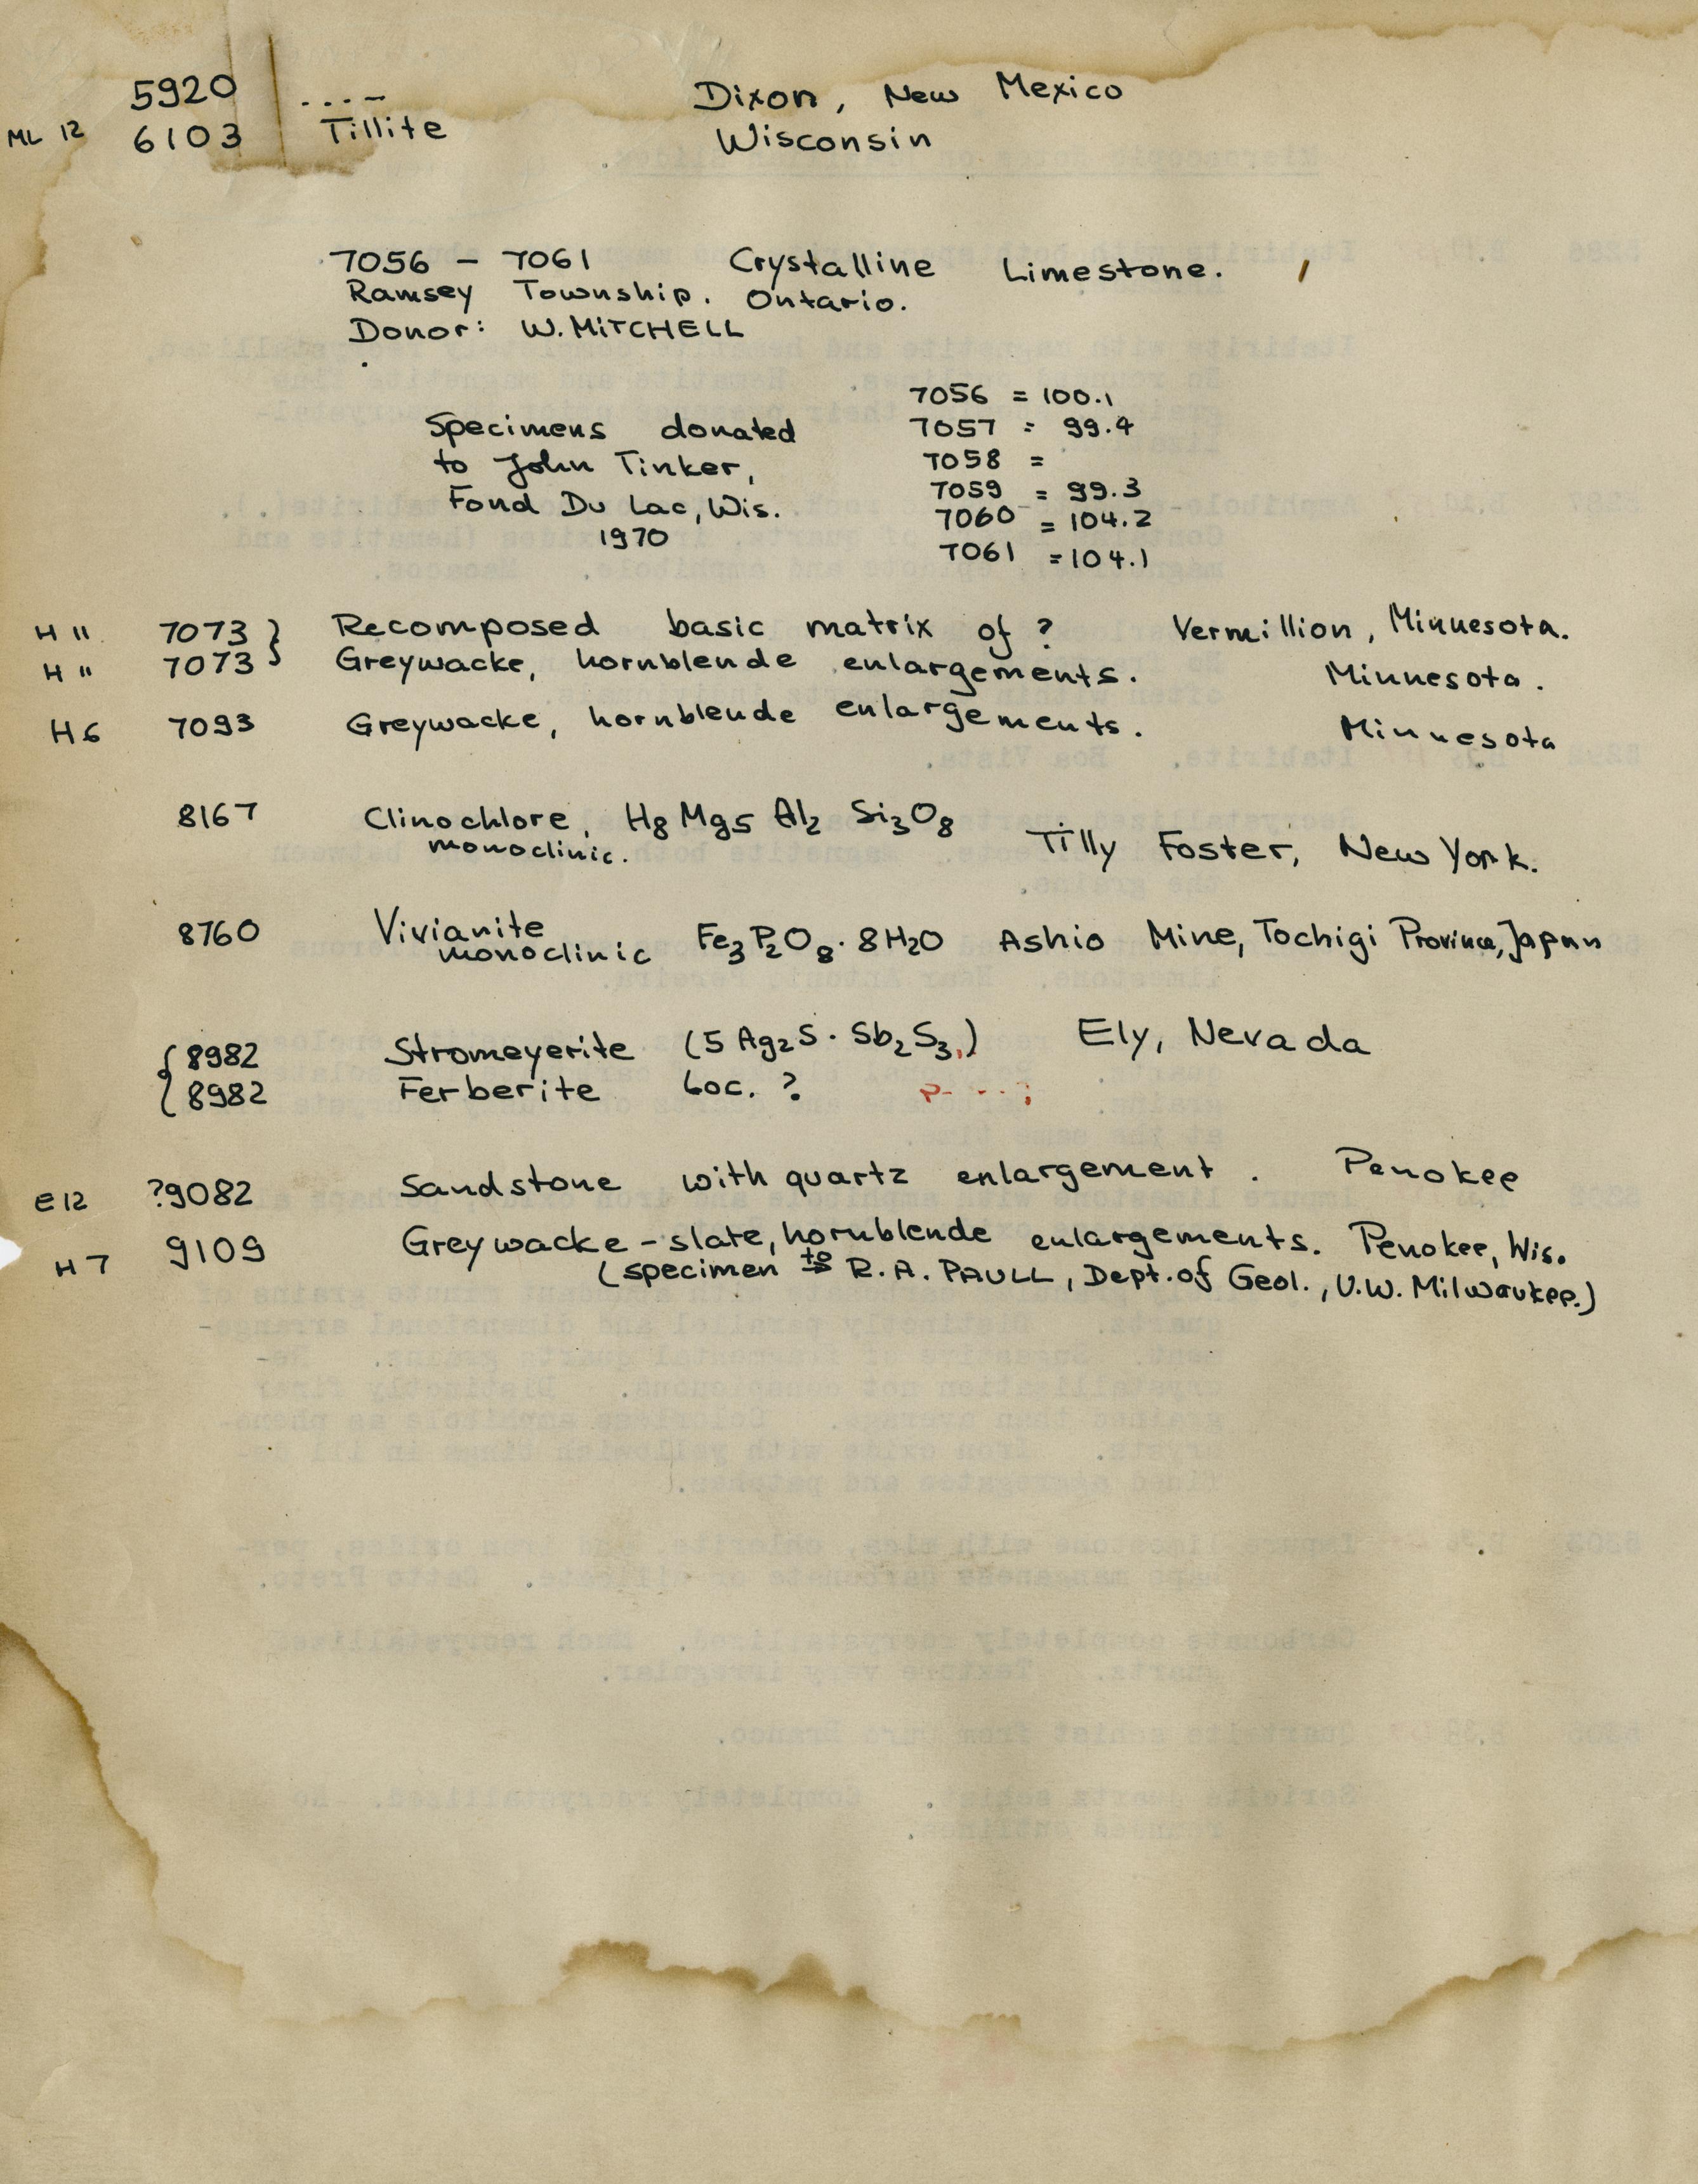 5920 ....– Dixon, New Mexico
ML 12 6103 Tillite Wisconsin
7056 – 7061 Crystalline Limestone.
Ramsey Township. Ontario.
Donor: W. MiTCHELL
Specimens donated
to John Tinker,
Fond Du Lac, Wis.
1970
7056 = 100.1
7057 = 99.4
7058 =
7059 = 99.3
7060 = 104.2
7061 = 104.1
H 11 7073 } Recomposed basic matrix of ? Vermillion, Minnesota.
H 11 7073 Greywacke, hornblende enlargements. Minnesota.
H6 7093 Greywacke, hornblende enlargements. Minnesota
8167 Clinochlore, H8 Mg5 Al2 Si3O8
monoclinic. Tilly Foster, New York.
8760 Vivianite Fe3P2O8·8H2O Ashio Mine, Tochigi Province, Japan
monoclinic
{ 8982 Stromeyerite (5 Ag2S · Sb2S3) Ely, Nevada
8982 Ferberite Loc. ?
E12 ?9082 Sandstone with quartz enlargement. Penokee
H7 9109 Greywacke–slate, hornblende enlargements. Penokee, Wis.
(specimen to R.A. PAULL, Dept. of Geol., U.W. Milwaukee.)